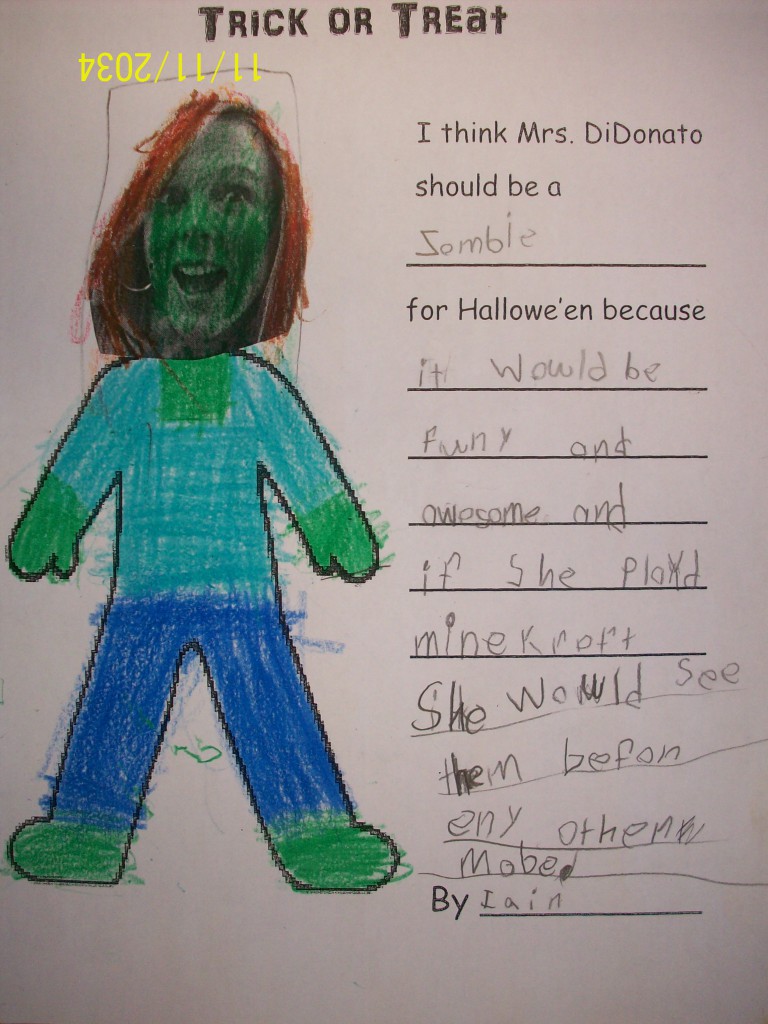 TRICK OR TREAT
11/11/2034
I think Mrs. DiDonato
should be a
Zombie
for Hallowe'en because
it would be
funy and
awesome and
if She playd
minekraft
She would See
them befor
eny other
mobe
By Iain